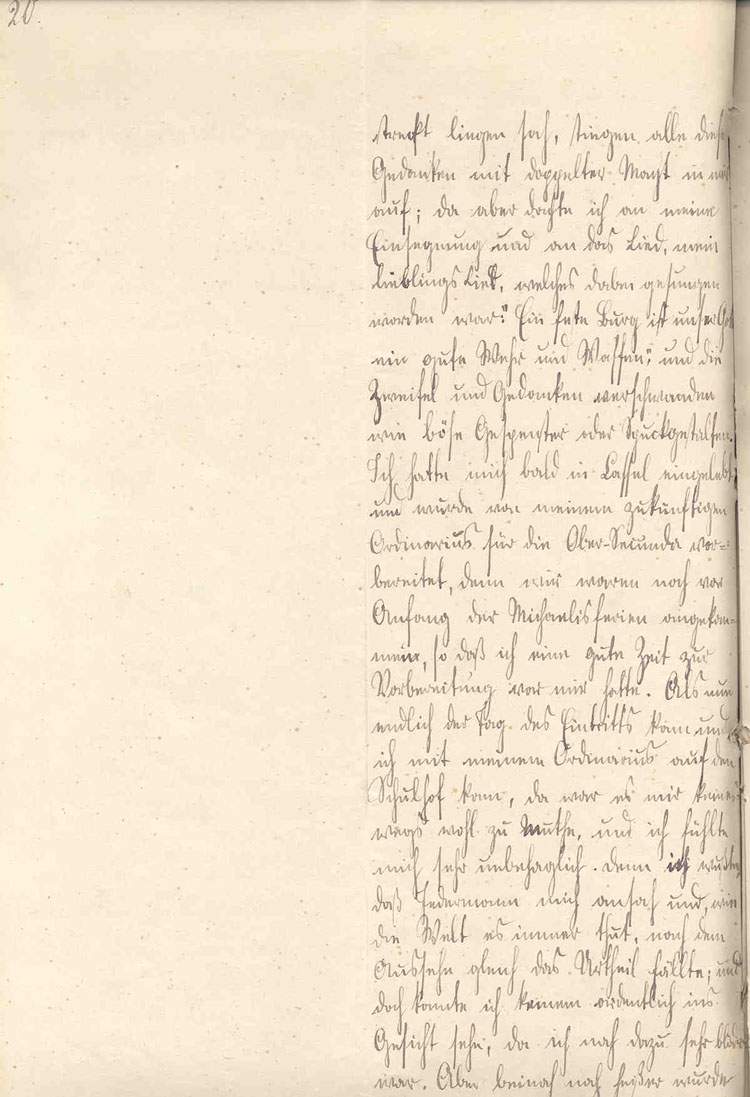 20.
streckt liegen sah, stiegen alle diese
Gedanken mit doppelter Macht in mir
auf; da aber dachte ich an meine
Einsegnung und an das Lied, mein
Lieblingslied, welches dabei gesungen
worden war: "Ein feste Burg ist unser Gott
ein gute Wehr und Waffen", und die
Zweifel und Gedanken verschwanden
wie böse Gespenster oder Spuckgestalten.
Ich hatte mich bald in Cassel eingelebt
und wurde von meinem zukünftigen
Ordinarius für die Ober-Secunda vor=
bereitet, denn wir waren noch vor
Anfang der Michaelisferien angekom=
men, so daß ich eine gute Zeit zur
Vorbereitung vor mir hatte. Als nun
endlich der Tag des Eintritts kam und
ich mit meinem Ordinarius auf den
Schulhof kam, da war es mir keines=
wegs wohl zu Muthe, und ich fühlte
mich sehr unbehaglich. Denn ich wußte
daß Jedermann mich ansah und, wie
die Welt es immer thut, nach dem
Aussehn gleich das Urtheil fällte; und
doch konnte ich keinem ordentlich ins
Gesicht sehn, da ich noch dazu sehr blöde
war. Aber beinah noch heißer wurde